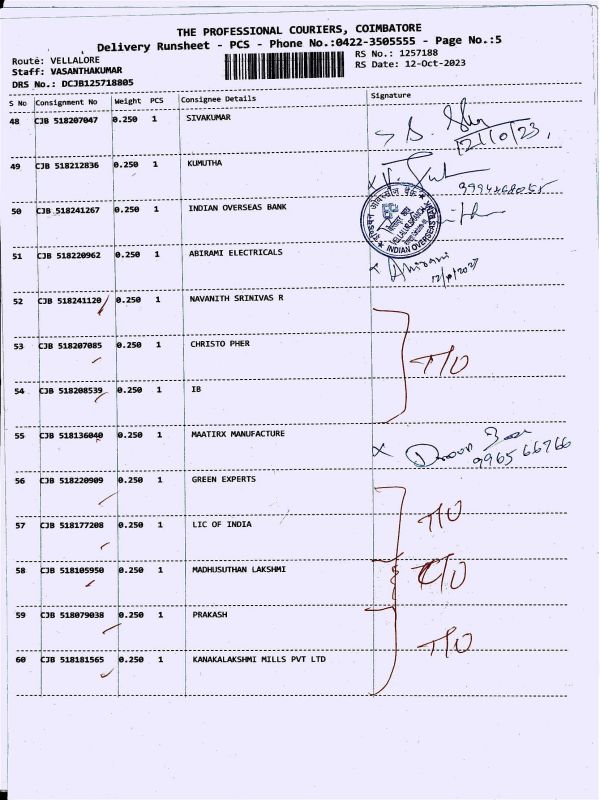 THE PROFESSIONAL COURIERS, COIMBATORE
Delivery Runsheet - PCS - Phone No.:0422-3505555 - Page No.:5
Route: VELLALORE
RS No.: 1257188
Staff: VASANTHAKUMAR
RS Date: 12-Oct-2023
DRS No.: DCJB125718805
S No Consignment No Weight PCS Consignee Details Signature
48 CJB 518207047 0.250 1 SIVAKUMAR
12/10/23,
49 CJB 518212836 0.250 1 KUMUTHA
50 CJB 518241267 0.250 1 INDIAN OVERSEAS BANK
INDIAN OVERSEAS
51 CJB 518220962 0.250 1 ABIRAMI ELECTRICALS
Abirami
52 CJB 518241120 0.250 1 NAVANITH SRINIVAS R
53 CJB 518207085 0.250 1 CHRISTO PHER
T/O
54 CJB 518208539 0.250 1 IB
55 CJB 518136040 0.250 1 MAATIRX MANUFACTURE
9965 66766
56 CJB 518220909 0.250 1 GREEN EXPERTS
T/O
57 CJB 518177208 0.250 1 LIC OF INDIA
58 CJB 518105950 0.250 1 MADHUSUTHAN LAKSHMI
59 CJB 518079038 0.250 1 PRAKASH
T/O
60 CJB 518181565 0.250 1 KANAKALAKSHMI MILLS PVT LTD